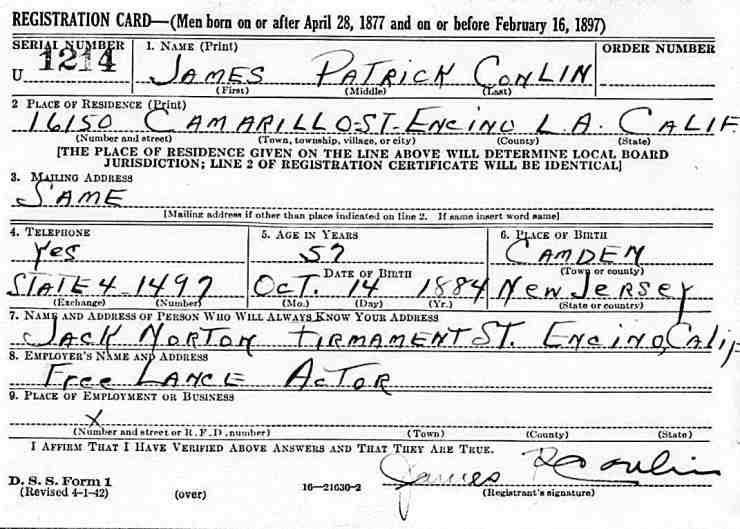 REGISTRATION CARD—(Men born on or after April 28, 1877 and on or before February 16, 1897)
SERIAL NUMBER 1. NAME (Print) ORDER NUMBER
U 1214 JAMES PATRICK CONLIN
(First) (Middle) (Last)
2 PLACE OF RESIDENCE (Print)
16150 CAMARILLO-ST-ENCINO L.A. CALIF
(Number and street) (Town, township, village, or city) (County) (State)
[THE PLACE OF RESIDENCE GIVEN ON THE LINE ABOVE WILL DETERMINE LOCAL BOARD
JURISDICTION; LINE 2 OF REGISTRATION CERTIFICATE WILL BE IDENTICAL]
3. MAILING ADDRESS
SAME
[Mailing address if other than place indicated on line 2. If same insert word same]
4. TELEPHONE 5. AGE IN YEARS 6. PLACE OF BIRTH
Yes 57 CAMDEN
DATE OF BIRTH (Town or county)
STATE 4-1497 OCT. 14 1884 NEW JERSEY
(Exchange) (Number) (Mo.) (Day) (Yr.) (State or country)
7. NAME AND ADDRESS OF PERSON WHO WILL ALWAYS KNOW YOUR ADDRESS
JACK NORTON FIRMAMENT ST. ENCINO, Calif
8. EMPLOYER'S NAME AND ADDRESS
Free LANCE ACTOR
9. PLACE OF EMPLOYMENT OR BUSINESS
X
(Number and street or R.F.D. number) (Town) (County) (State)
I AFFIRM THAT I HAVE VERIFIED ABOVE ANSWERS AND THAT THEY ARE TRUE.
James P Conlin
D. S. S. Form 1
(Revised 4-1-42) (over) 16—21630-2 (Registrant's signature)